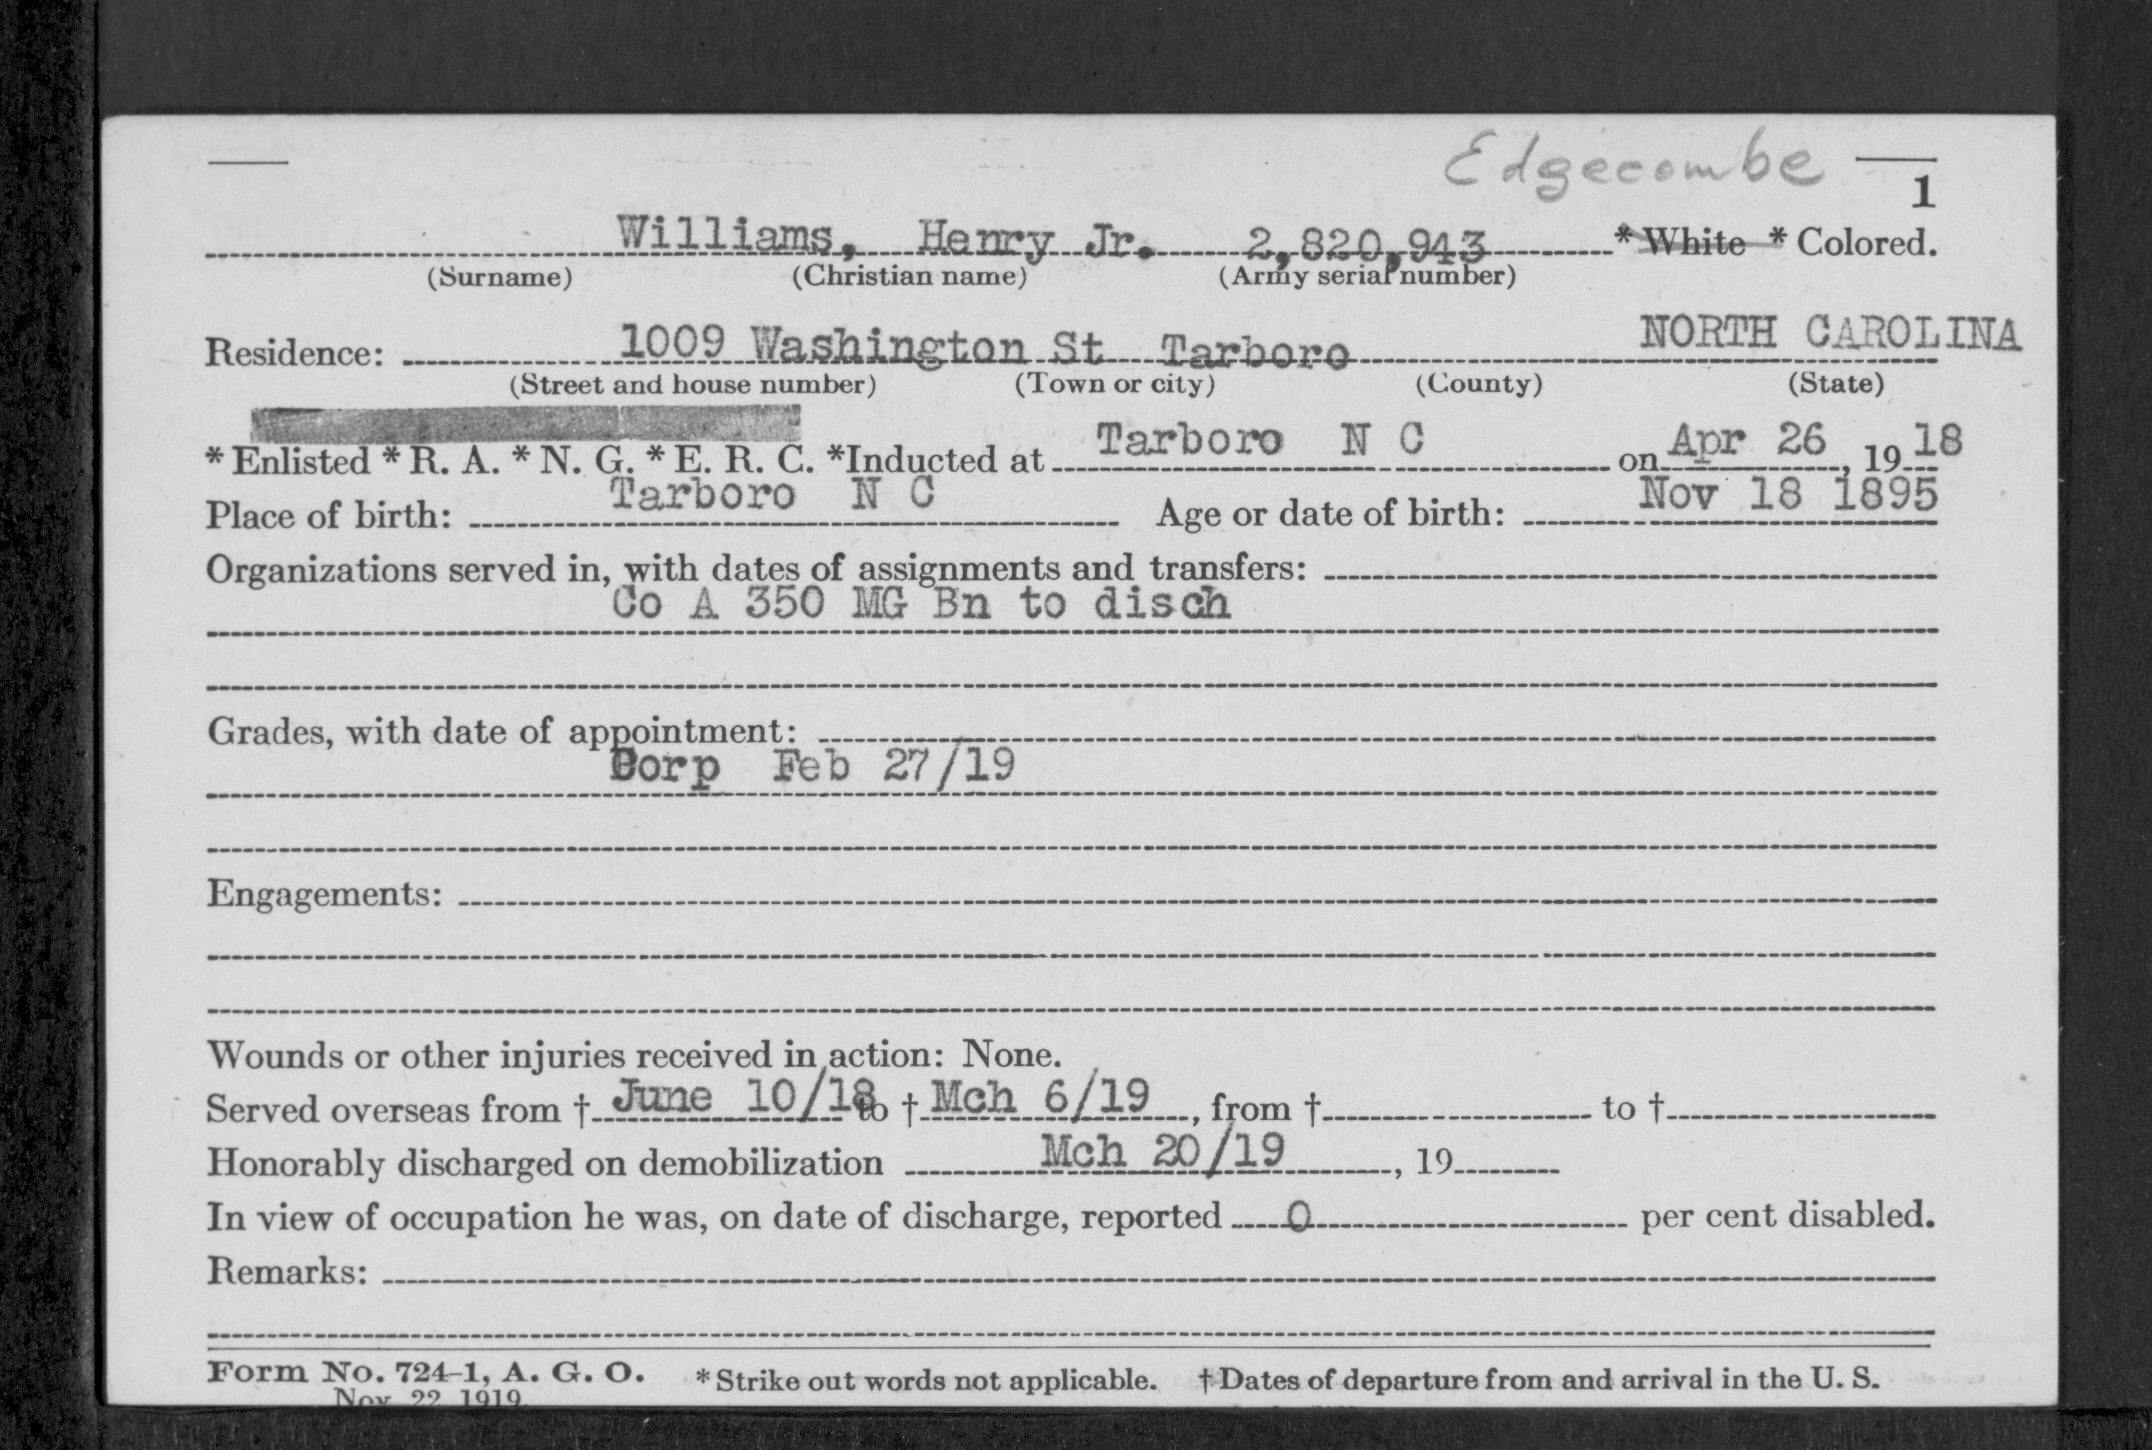 Edgecombe
1
Williams, Henry Jr. 2,820,943 * White * Colored.
(Surname) (Christian name) (Army serial number)
Residence: 1009 Washington St Tarboro NORTH CAROLINA
(Street and house number) (Town or city) (County) (State)
* Enlisted * R. A. * N. G. * E. R. C. *Inducted at Tarboro N C on Apr 26, 19 18
Place of birth: Tarboro N C Age or date of birth: Nov 18 1895
Organizations served in, with dates of assignments and transfers:
Co A 350 MG Bn to disch
Grades, with date of appointment:
Corp Feb 27/19
Engagements:
Wounds or other injuries received in action: None.
Served overseas from † June 10/18 to † Mch 6/19, from † to †
Honorably discharged on demobilization Mch 20/19, 19
In view of occupation he was, on date of discharge, reported 0 per cent disabled.
Remarks:
Form No. 724-1, A. G. O. * Strike out words not applicable. † Dates of departure from and arrival in the U. S.
Nov. 22, 1919.